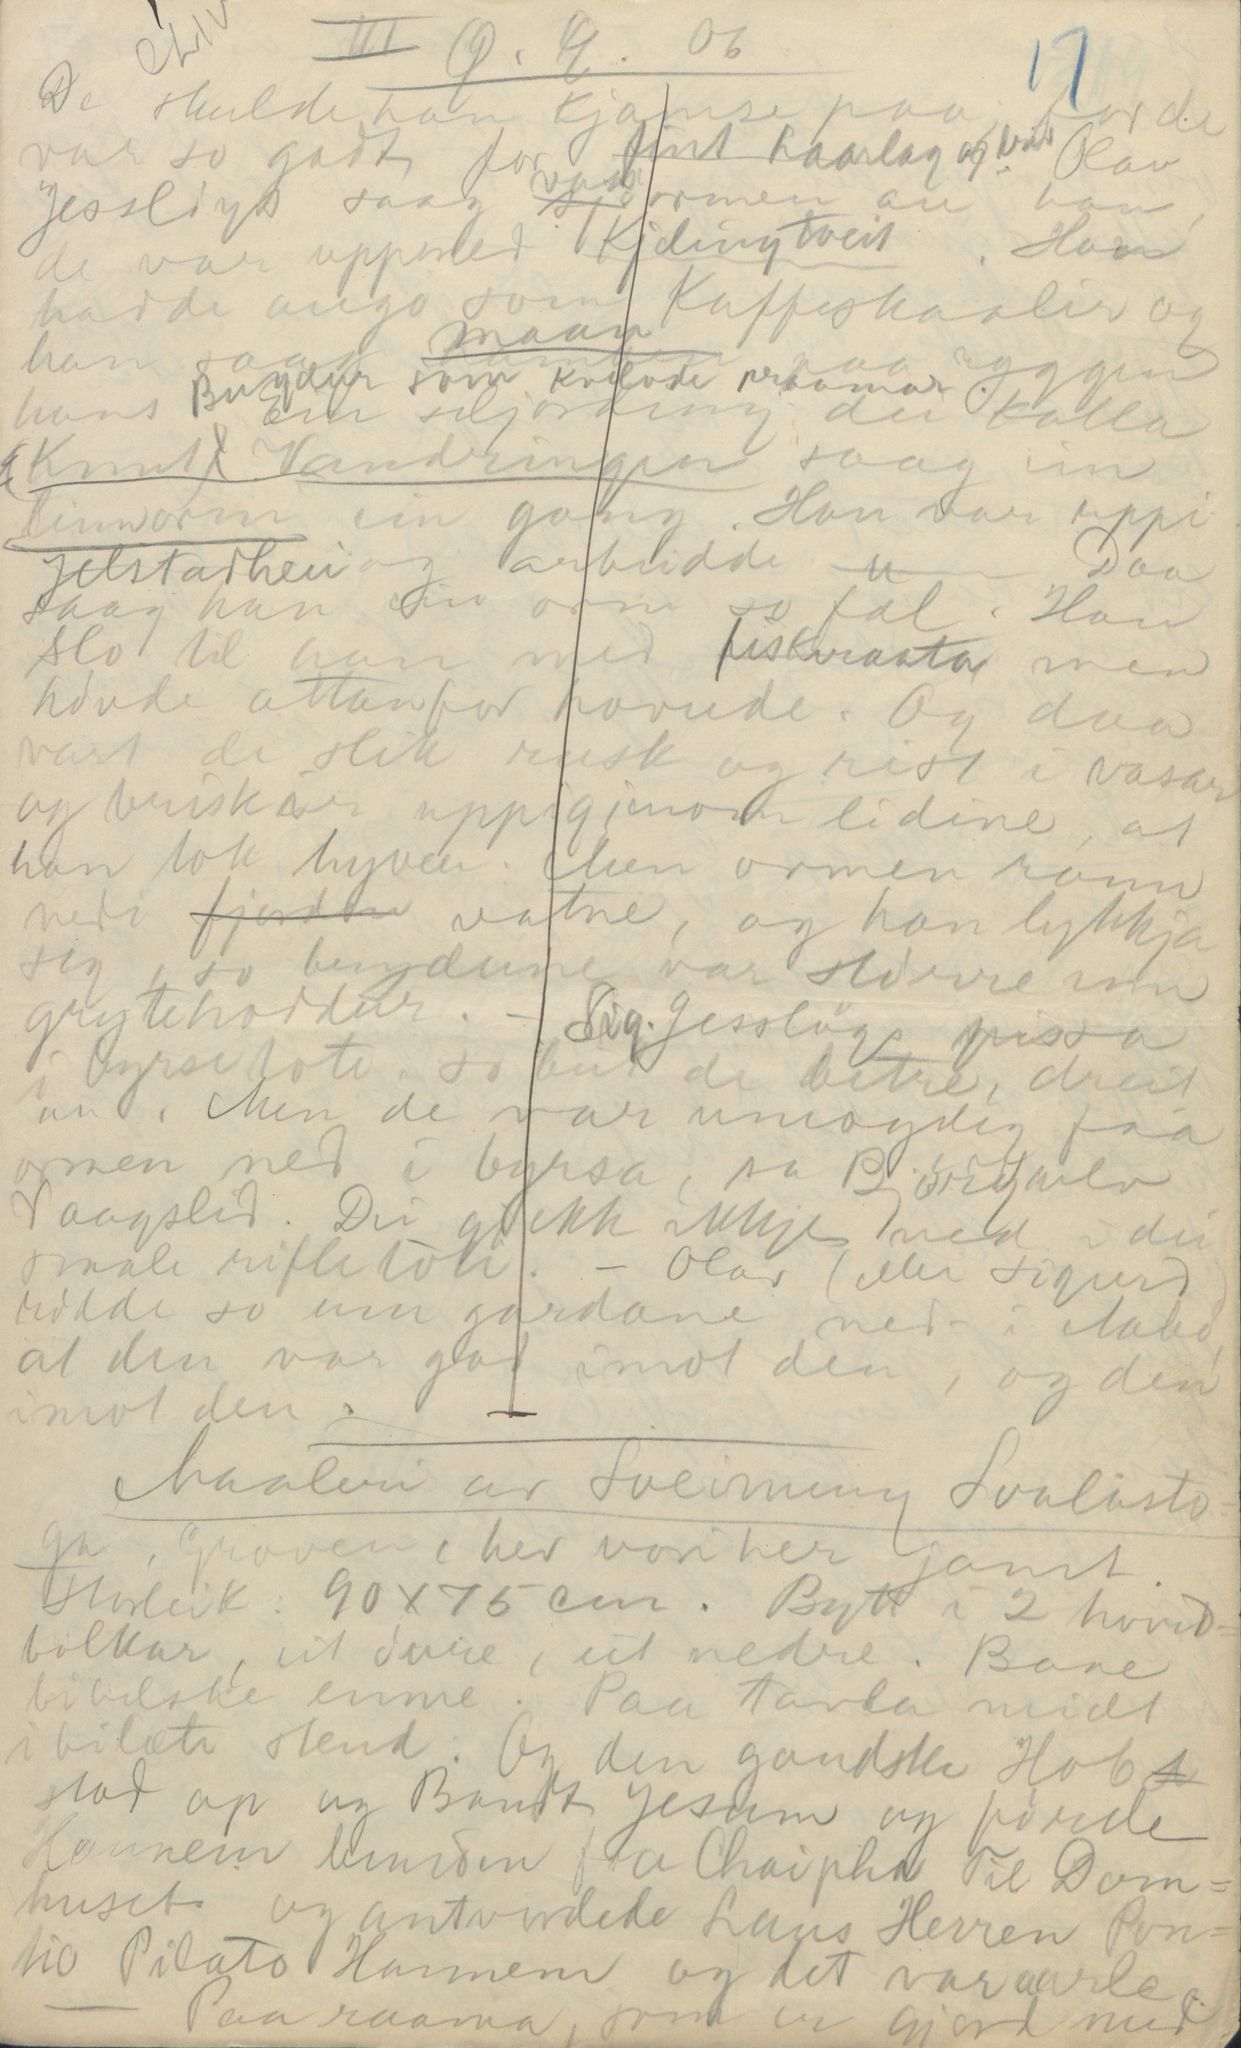 III O. T. 06 17
De skulde han kjømse paa, for de
var so godt for fint haarlag og Olav
Jesslöys saag vass ormen au han,
de var uppmed Kjelingtveit. Han
hadde augo som Kaffiskaalir og
han saag maan paa ryggen
hans Bugdur som kvilode
Ein seljording dei kalla
Knut Vandringen saag ein
linnorm ein gong. Han var uppi
Jelstadhei og arbeidde Daa
saag han ein orm so fæl. Han
slo til aan med men
hövde attanfor hovude. Og daa
vart de slik rusk og rist i vasar
og briskar uppigjenom lidine, at
han tok tyven. Men ormen rann
nedi fjorden vatne, og han lykkja
seg, so bugdune var större enn
grytehoddur. – Sig. Jesslöys pissa
i byrsetote, so beit de betre, dreit
au. Men de var umogleg faa
ormen ned i byrsa, sa Björgulv
Vaagslid. Dei gjekk ikkje ned i dei
smale rifletoti. – Olav (eller Sigurd)
rödde so um gardane ned i Mabö,
at den var god imot den, og den
imot den.
Maaleri av Sveinung Svalasto-
ga, Groven, her vori her jamt.
Storleik: 90 x 75 cm. Bytt i 2 hovud=
bolkar, eit övre, eit nedre. Bare
bibelske emne. Paa tavla midt
i bilæte stend: Og den gandske Hob
stod op og Bandt Jesum og förde
Hannem bunden fra Chaipha Til Dom=
huset og antvordede Lans Herren Pon=
tio Pilato Hannem og det var aarle.
— Paa raama, som er gjord med